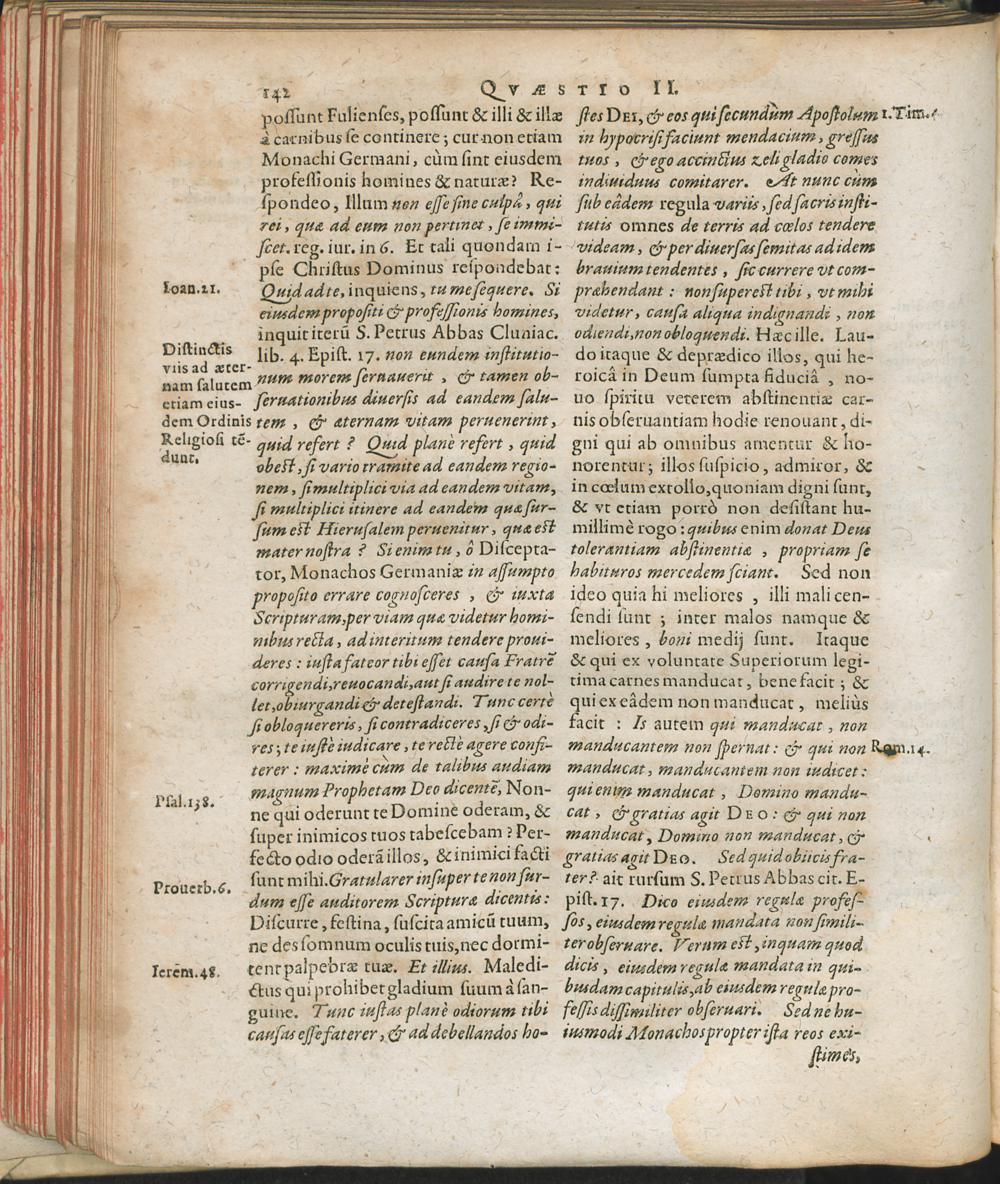 142
QVÆSTIO II.
possunt Fulienses, possunt & illi & illæ
à carnibus se continere; cur non etiam
Monachi Germani, cùm sint eiusdem
professionis homines & naturæ? Re-
spondeo, Illum non esse sine culpâ, qui
rei, quæ ad eum non pertinet, se immi-
scet. reg. iur. in 6. Et tali quondam i-
pse Christus Dominus respondebat:
Ioan.21.
Quid ad te, inquiens, tu me sequere. Si
eiusdem propositi & professionis homines,
inquit iterũ S. Petrus Abbas Cluniac.
Distinctis
viis ad æter-
nam salutem
etiam eius-
dem Ordinis
Religiosi tē-
dunt.
lib. 4. Epist. 17. non eundem institutio-
num morem seruauerit, & tamen ob-
seruationibus diuersis ad eandem salu-
tem, & æternam vitam peruenerint,
quid refert? Quid planè refert, quid
obest, si vario tramite ad eandem regio-
nem, si multiplici via ad eandem vitam,
si multiplici itinere ad eandem quæ sur-
sum est Hierusalem peruenitur, quæ est
mater nostra? Si enim tu, ô Discepta-
tor, Monachos Germaniæ in assumpto
proposito errare cognosceres, & iuxta
Scripturam, per viam quæ videtur homi-
nibus recta, ad interitum tendere proui-
deres: iusta fateor tibi esset causa Fratrē
corrigendi, reuocandi, aut si audire te nol-
let, obiurgandi & detestandi. Tunc certè
si obloquereris, si contradiceres, si & odi-
res; te iustè iudicare, te rectè agere confi-
terer: maximè cùm de talibus audiam
magnum Prophetam Deo dicentē, Non-
Psal.138.
ne qui oderunt te Domine oderam, &
super inimicos tuos tabescebam? Per-
fecto odio oderã illos, & inimici facti
sunt mihi. Gratularer insuper te non sur-
Prouerb.6.
dum esse auditorem Scripturæ dicentis:
Discurre, festina, suscita amicũ tuum,
ne des somnum oculis tuis, nec dormi-
tent palpebræ tuæ. Et illius. Maledi-
Ierem.48.
ctus qui prohibet gladium suum à san-
guine. Tunc iustas planè odiorum tibi
causas esse faterer, & ad debellandos ho-
stes DEI, & eos qui secundùm Apostolum
1.Tim.
in hypocrisi faciunt mendacium, gressus
tuos, & ego accinctus zeli gladio comes
indiuiduus comitarer. At nunc cùm
sub eâdem regula variis, sed sacris insti-
tutis omnes de terris ad cœlos tendere
videam, & per diuersas semitas ad idem
brauium tendentes, sic currere vt com-
præhendant: non superest tibi, vt mihi
videtur, causa aliqua indignandi, non
odiendi, non obloquendi. Hæc ille. Lau-
do itaque & deprædico illos, qui he-
roicâ in Deum sumpta fiduciâ, no-
uo spiritu veterem abstinentiæ car-
nis obseruantiam hodie renouant, di-
gni qui ab omnibus amentur & ho-
norentur; illos suspicio, admiror, &
in cœlum extollo, quoniam digni sunt,
& vt etiam porrò non desistant hu-
millimè rogo: quibus enim donat Deus
tolerantiam abstinentiæ, propriam se
habituros mercedem sciant. Sed non
ideo quia hi meliores, illi mali cen-
sendi sunt; inter malos namque &
meliores, boni medij sunt. Itaque
& qui ex voluntate Superiorum legi-
tima carnes manducat, bene facit; &
qui ex eâdem non manducat, meliùs
facit: Is autem qui manducat, non
manducantem non spernat: & qui non
Rom.14.
manducat, manducantem non iudicet:
qui enim manducat, Domino mandu-
cat, & gratias agit DEO: & qui non
manducat, Domino non manducat, &
gratias agit DEO. Sed quid obiicis fra-
ter? ait rursum S. Petrus Abbas cit. E-
pist. 17. Dico eiusdem regulæ profes-
sos, eiusdem regulæ mandata non simili-
ter obseruare. Verum est, inquam quod
dicis, eiusdem regulæ mandata in qui-
busdam capitulis, ab eiusdem regulæ pro-
fessis dissimiliter obseruari. Sed ne hu-
iusmodi Monachos propter ista reos exi-
stimes,